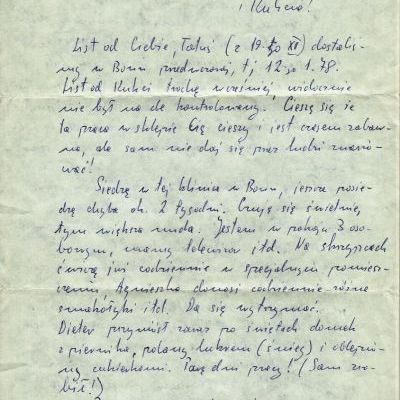 i Kulcia!
List od Ciebie, Tatuś (z 19-go XI) dostaliś-
my w Bonn przedwczoraj, tj 12-go 1.78.
List od trochę wcześniej, widocznie
nie był na tle kontrolowany. Cieszę się że
ta praca w sklepie Cię cieszy i jest czasem zabaw-
na, ale sam nie daj się przez ludzi zwario-
wać!
Siedzę w tej klinice w Bonn, jeszcze posie-
dzę chyba ok. 2 tygodni. Czuję się świetnie,
tym większa nuda. Jestem w pokoju 3 oso-
bowym, mamy telewizor itd. Na skrzypcach
ćwiczę już codziennie w specjalnym pomiesz-
czeniu. Agnieszka donosi codziennie różne
smakołyki itd. Da się wytrzymać.
Dieter przyniósł zaraz po świętach domek
z piernika, polany lukrem (śnieg) i oblepio-
ny cukierkami. Parę dni pracy! (Sam zro-
bił!)